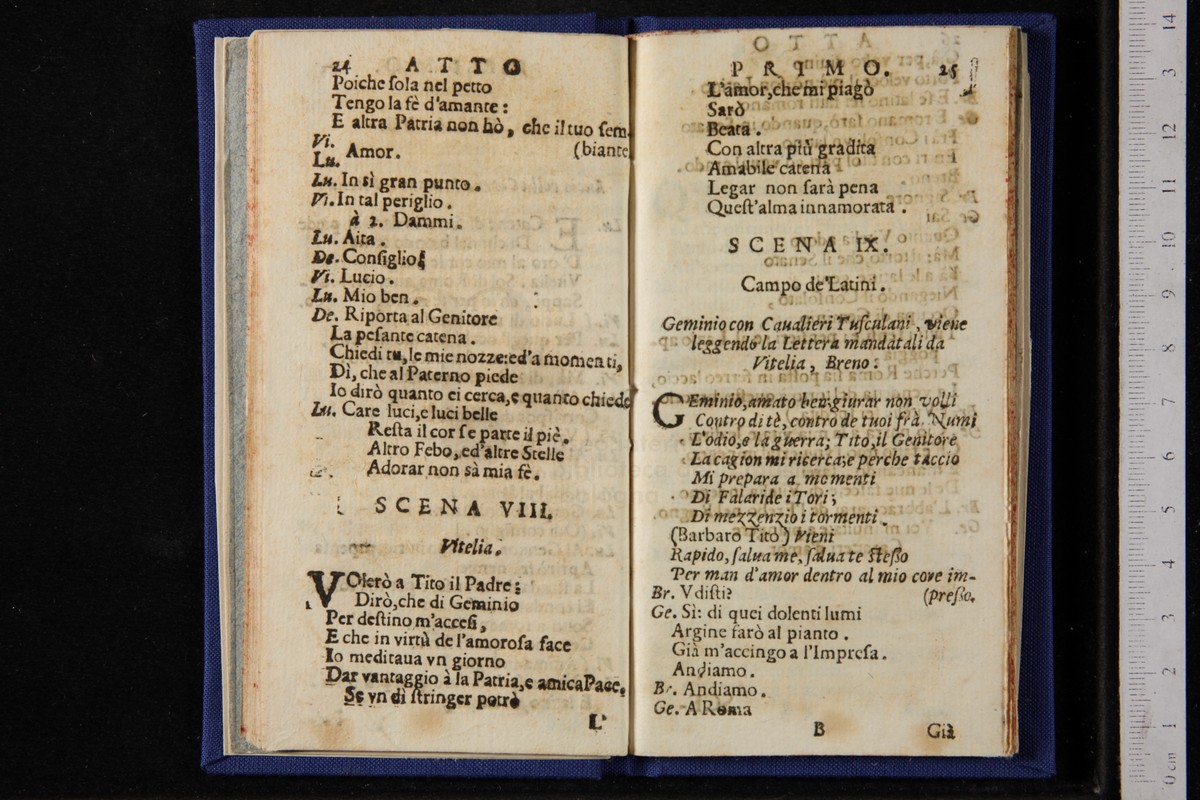 24 ATTO
Poiche ſola nel petto
Tengo la fè d'amante :
E altra Patria non hò, che il tuo ſem-
Vi.
Lu. Amor. (biante
Lu. In sì gran punto.
Vi. In tal periglio.
à 2. Dammi.
Lu. Aita.
De. Conſiglio
Vi. Lucio.
Lu. Mio ben.
De. Riporta al Genitore
La peſante catena.
Chiedi tu, le mie nozze: ed'a momenti,
Dì, che al Paterno piede
Io dirò quanto ei cerca, e quanto chiede
Lu. Care luci, e luci belle
Reſta il cor ſe parte il piè.
Altro Febo, ed'altre Stelle
Adorar non sà mia fè.
SCENA VIII.
Vitelia.
VOlerò a Tito il Padre;
Dirò, che di Geminio
Per deſtino m'acceſi,
E che in virtù de l'amoroſa face
Io meditaua vn giorno
Dar vantaggio à la Patria, e amica Pace.
Se vn dì ſtringer potrò
L'
PRIMO. 25
L'amor, che mi piagò
Sarò
Beata.
Con altra più gradita
Amabile catena
Legar non farà pena
Queſt'alma innamorata.
SCENA IX.
Campo de'Latini.
Geminio con Caualieri Tuſculani, viene
leggendo la Lettera mandatali da
Vitelia, Breno:
GEminio, amato ben, giurar non volli
Contro di tè, contro de tuoi frà Numi
L'odio, e la guerra; Tito, il Genitore
La cagion mi ricerca; e perche taccio
Mi prepara a momenti
Di Falaride i Tori;
Di mezzenzio i tormenti.
(Barbaro Tito) Vieni
Rapido, ſalua me, ſalua te ſteſſo
Per man d'amor dentro al mio core im-
Br. Vdiſti? (preſſo.
Ge. Sì: di quei dolenti lumi
Argine farò al pianto.
Già m'accingo a l'Impreſa.
Andiamo.
Br. Andiamo.
Ge. A Roma
B Già
14
13
12
11
10
9
8
7
6
5
4
3
2
1
0 cm